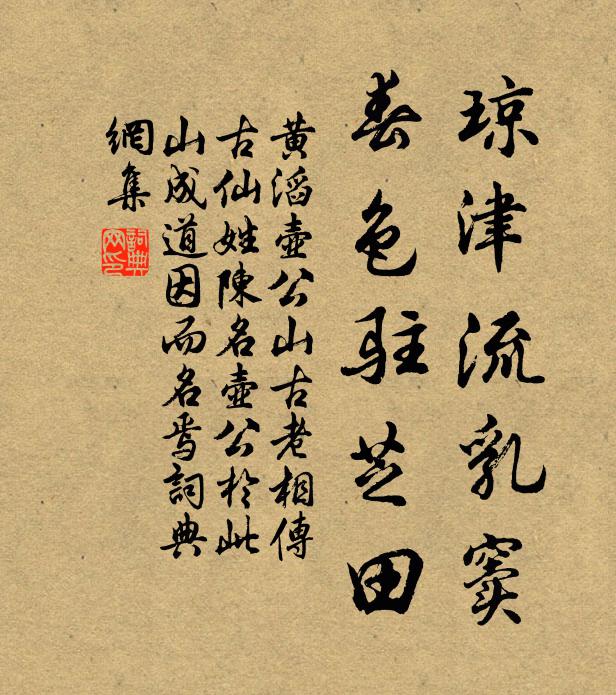 琼津流乳窦
春色驻芝田
黄滔壶公山古老相傳
古仙姓陳名壶公於此
山成道因而名焉詞典
網集
詞典
网印